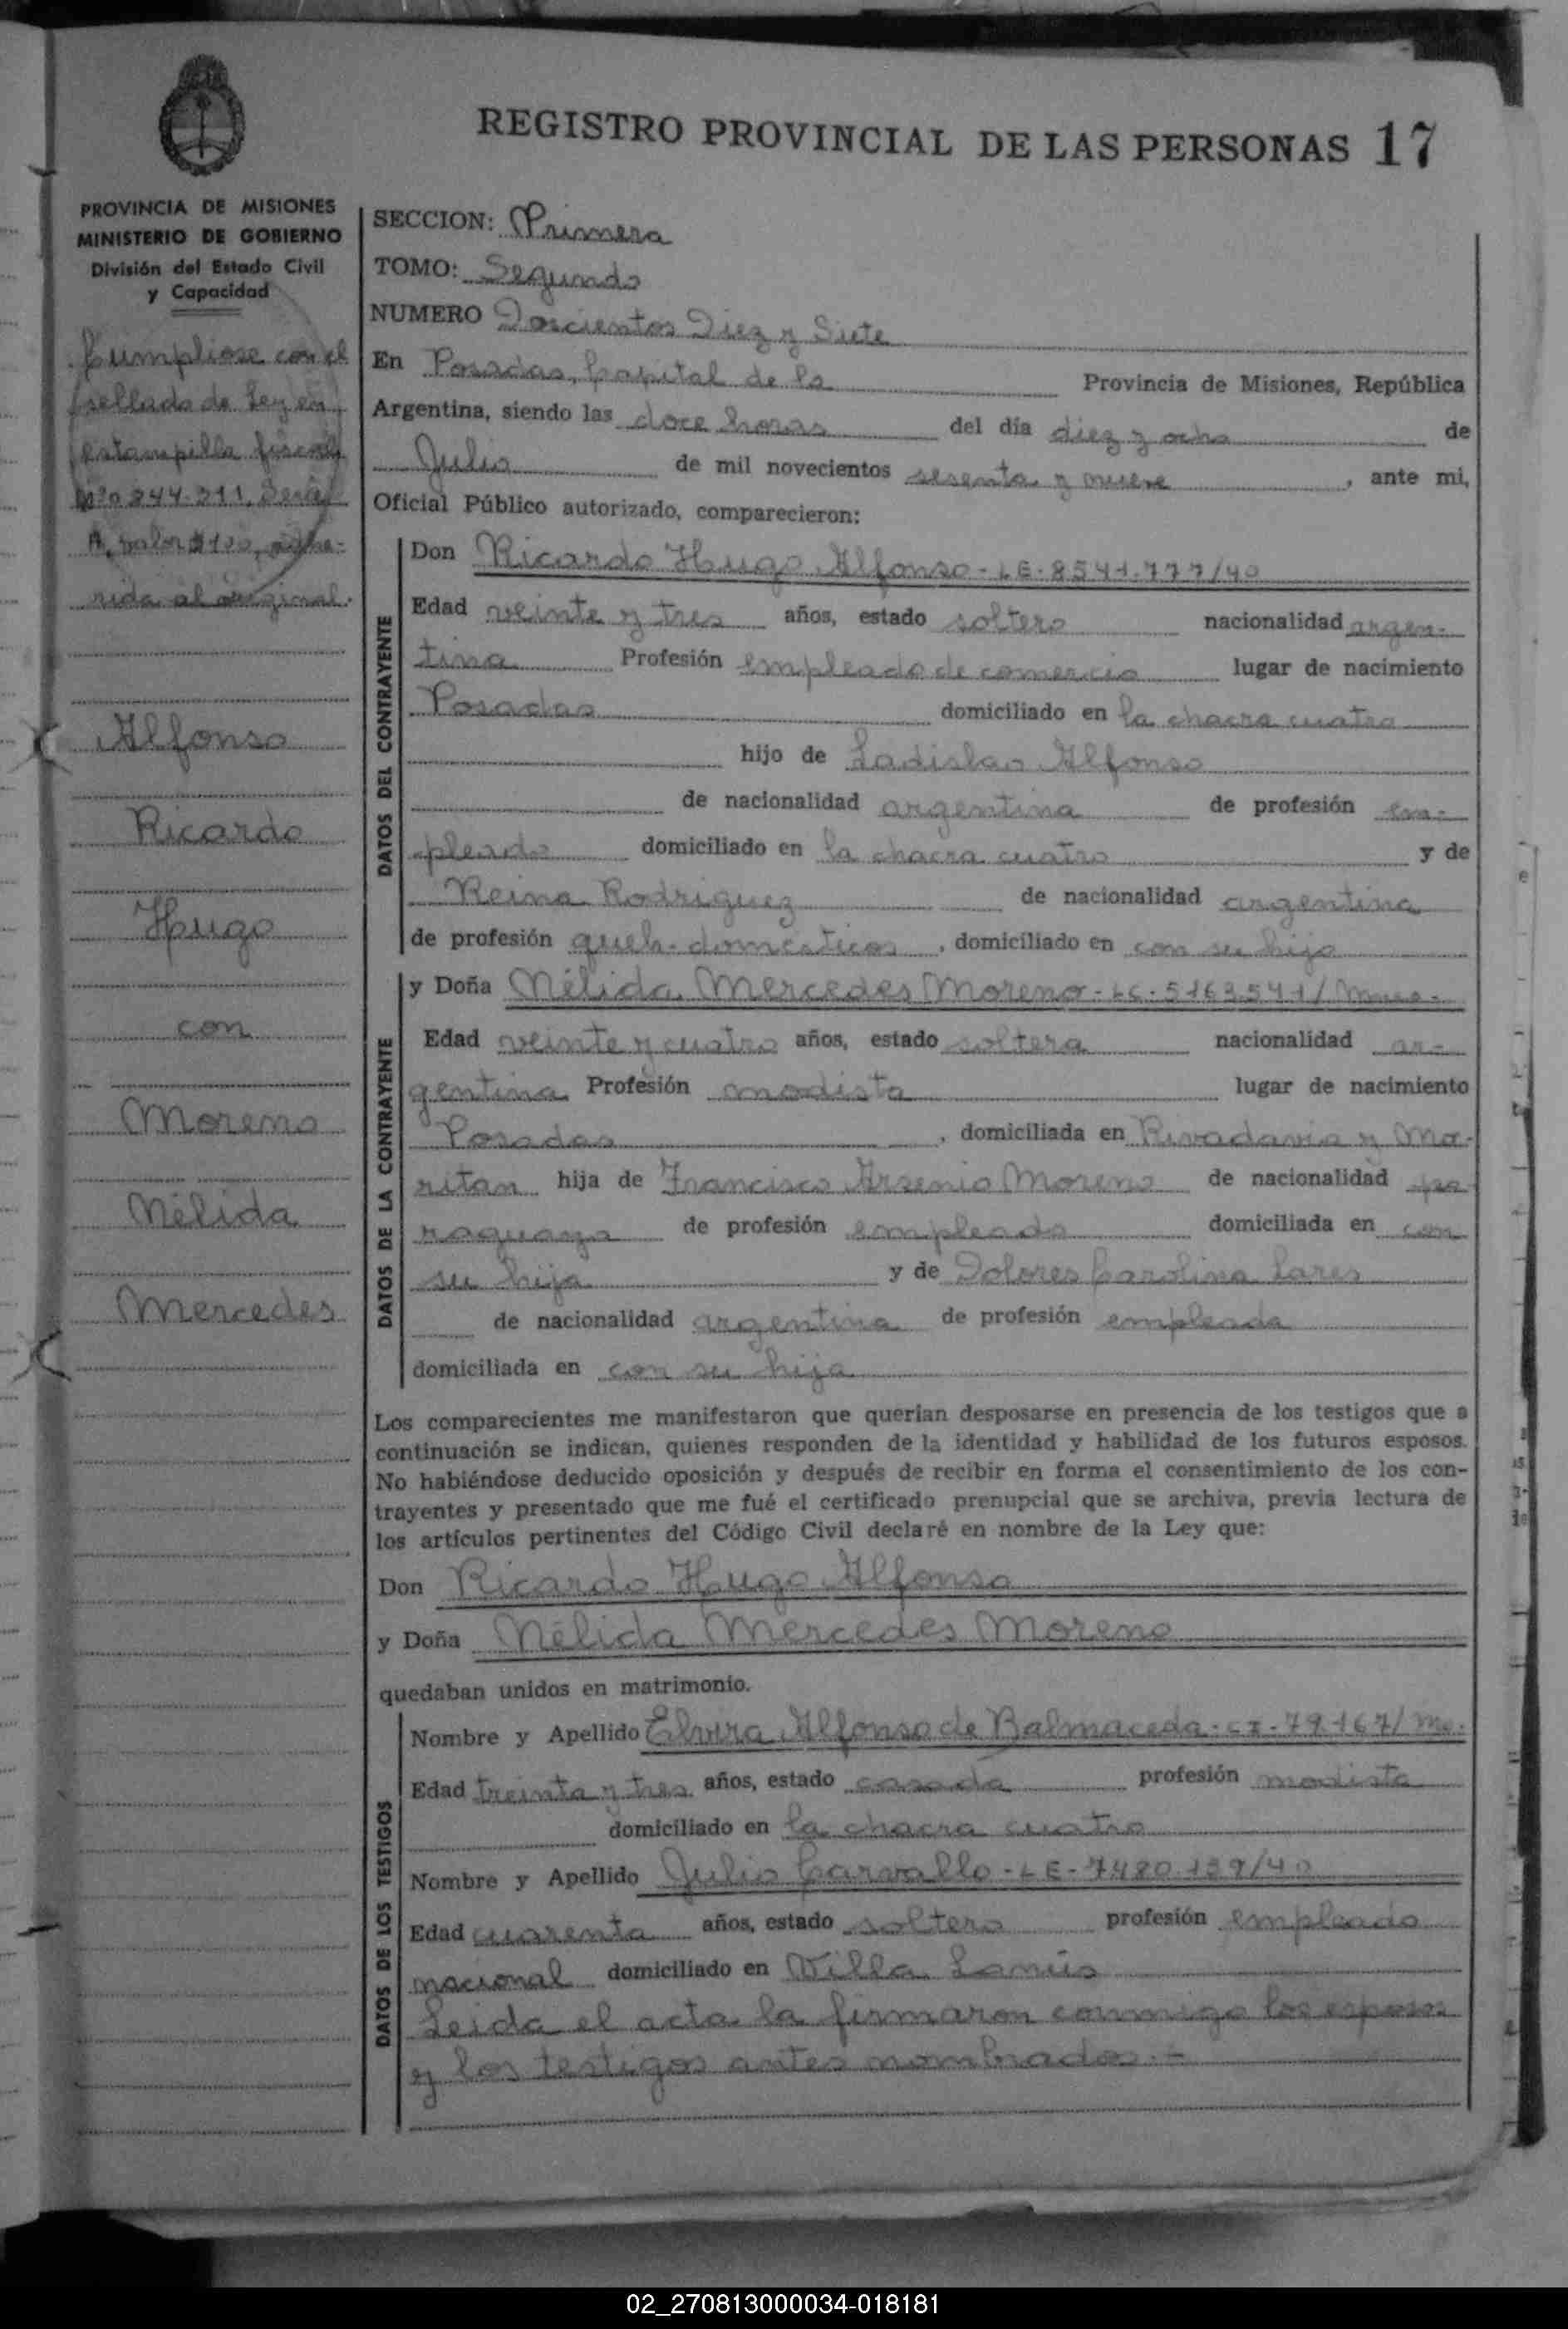 REGISTRO PROVINCIAL DE LAS PERSONAS 17
PROVINCIA DE MISIONES
MINISTERIO DE GOBIERNO
División del Estado Civil
y Capacidad
Cumpliose con el
sellado de Ley en
estampilla fiscal
Nº0.244.211, Serie
A, valor $100, adhe-
rida al original.
Alfonso
Ricardo
Hugo
con
Moreno
Nélida
Mercedes
SECCION: Primera
TOMO: Segundo
NUMERO Doscientos Diez y Siete
En Posadas, Capital de la Provincia de Misiones, República
Argentina, siendo las doce horas del día diez y ocho de
Julio de mil novecientos sesenta y nueve, ante mi,
Oficial Público autorizado, comparecieron:
DATOS DEL CONTRAYENTE
Don Ricardo Hugo Alfonso-LE-8541.777/40
Edad veinte y tres años, estado soltero nacionalidad argen-
tina Profesión empleado de comercio lugar de nacimiento
Posadas domiciliado en la chacra cuatro
hijo de Ladislao Alfonso
de nacionalidad argentina de profesión em-
pleado domiciliado en la chacra cuatro y de
Reina Rodriguez de nacionalidad argentina
de profesión queh-domésticos, domiciliado en con su hijo
DATOS DE LA CONTRAYENTE
y Doña Nélida Mercedes Moreno-LC-5163541/
Edad veinte y cuatro años, estado soltera nacionalidad ar-
gentina Profesión modista lugar de nacimiento
Posadas, domiciliada en Rivadavia y Mo-
ritan hija de Francisco Arsenio Moreno de nacionalidad pa-
raguaya de profesión empleado domiciliada en con
su hija y de Dolores Carolina Lares
de nacionalidad argentina de profesión empleada
domiciliada en con su hija
Los comparecientes me manifestaron que querían desposarse en presencia de los testigos que a
continuación se indican, quienes responden de la identidad y habilidad de los futuros esposos.
No habiéndose deducido oposición y después de recibir en forma el consentimiento de los con-
trayentes y presentado que me fué el certificado prenupcial que se archiva, previa lectura de
los artículos pertinentes del Código Civil declaré en nombre de la Ley que:
Don Ricardo Hugo Alfonso
y Doña Nélida Mercedes Moreno
quedaban unidos en matrimonio.
DATOS DE LOS TESTIGOS
Nombre y Apellido Elvira Alfonso de Balmaceda-CI-79.167/Mo.
Edad treinta y tres años, estado casada profesión modista
domiciliado en la chacra cuatro
Nombre y Apellido Julio Carvallo-LE-7480.139/40
Edad cuarenta años, estado soltero profesión empleado
nacional domiciliado en Villa Lanús
Leida el acta la firmaron conmigo los esposos
y los testigos antes nombrados.-
02_270813000034-018181